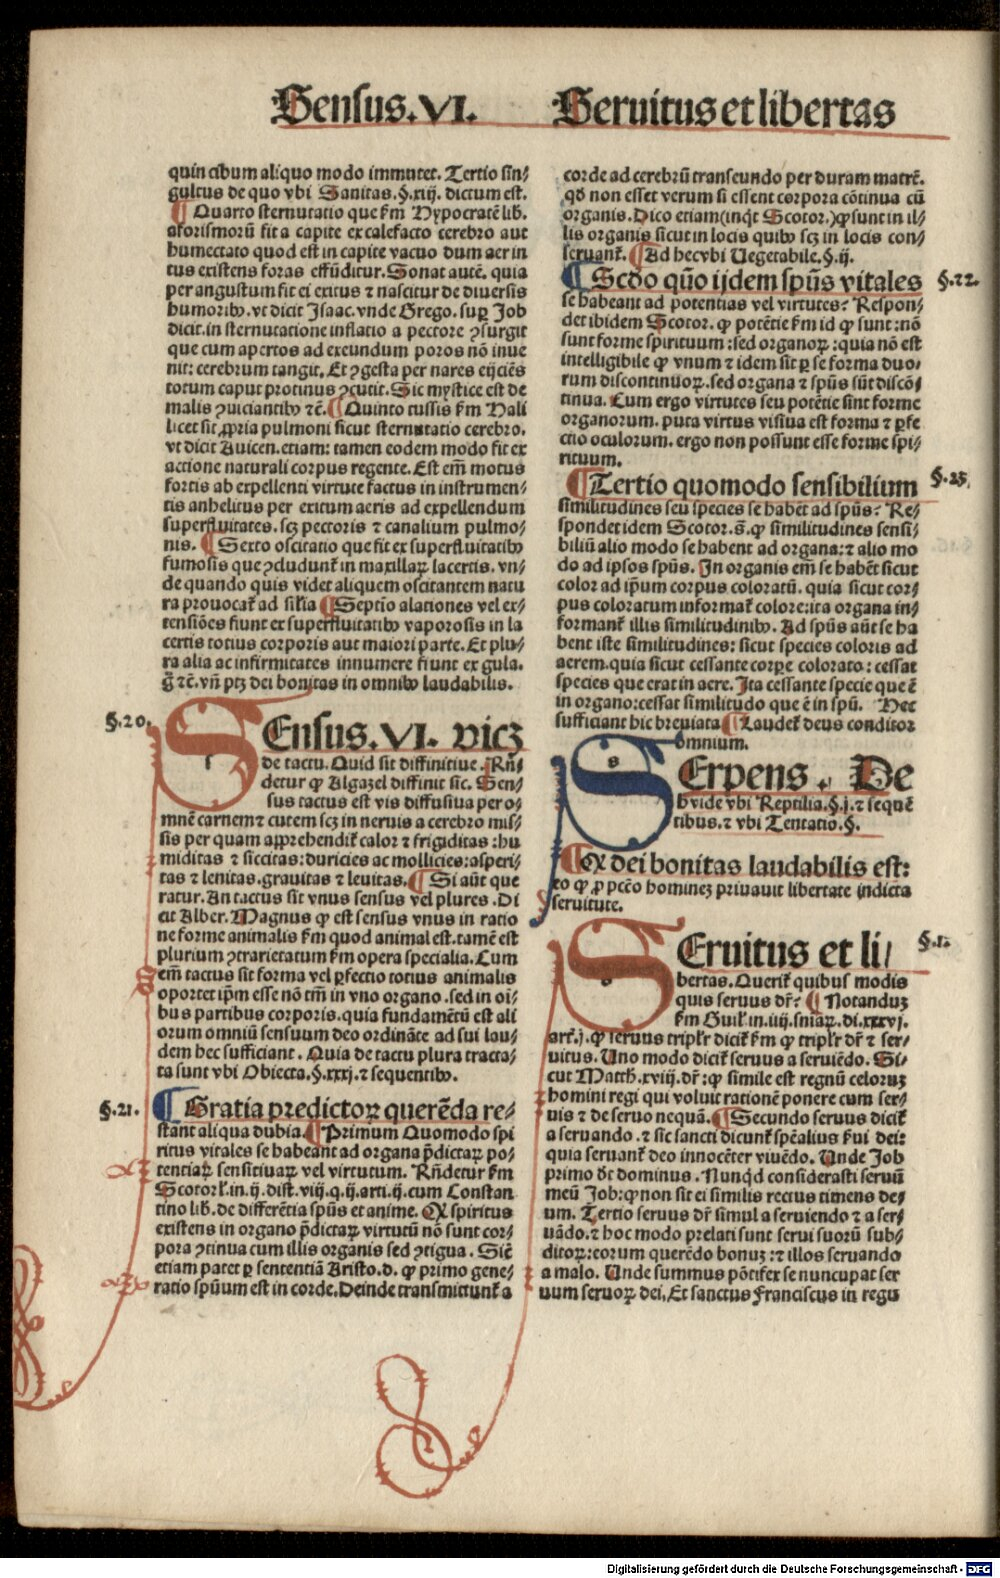 Sensus.VI. Seruitus et libertas
quin cibum aliquo modo immutet. Tertio sin⸗
gultus de quo vbi Sanitas.§.xij. dictum est.
¶ Quarto sternutatio que ẜm Hypocratē lib.
aforismorū fit a capite excalefacto cerebro aut
humectato quod est in capite vacuo dum aer in
tus existens foras effūditur. Sonat autē. quia
per angustum fit ei exitus ⁊ nascitur de diuersis
humoribꝰ. vt dicit Isaac. vnde Grego. suꝑ Job
dicit. in sternutatione inflatio a pectore ꝯsurgit
que cum apertos ad exeundum poros nō inue
nit: cerebrum tangit. Et ꝯgesta per nares eijciēs
totum caput protinus ꝯcutit. Sic mystice est de
malis ꝯuiciantibꝰ ⁊c̄. ¶ Quinto tussis ẜm Hali
licet sit ꝓpria pulmoni sicut sternutatio cerebro.
vt dicit Auicen. etiam: tamen eodem modo fit ex
actione naturali corpus regente. Est em̄ motus
fortis ab expellenti virtute factus in instrumen⸗
tis anhelitus per exitum aeris ad expellendum
superfluitates. scꝫ pectoris ⁊ canalium pulmo⸗
nis. ¶ Sexto oscitatio que fit ex superfluitatibꝰ
fumosis que ꝯcludunt̄ in maxillaꝝ lacertis. vn⸗
de quando quis videt aliquem oscitantem natu
ra prouocat̄ ad sil̄ia ¶ Septio alationes vel ex⸗
tensiōes fiunt ex superfluitatibꝰ vaporosis in la
certis totius corporis aut maiori parte. Et plu⸗
ra alia ac infirmitates innumere fiunt ex gula.
ḡ ⁊c̄. vn̄ ptꝫ dei bonitas in omnibꝰ laudabilis.
§.20.
SEnsus.VI. vicꝫ
de tactu. Quid sit diffinitiue. Rn̄⸗
detur ꝙ Algazel diffinit sic. Sen⸗
sus tactus est vis diffusiua per o⸗
mnē carnem ⁊ cutem scꝫ in neruis a cerebro mis⸗
sis per quam apprehendit̄ calor ⁊ frigiditas: hu
miditas ⁊ siccitas: duricies ac mollicies: asperi⸗
tas ⁊ lenitas. grauitas ⁊ leuitas. ¶ Si aūt que
ratur. An tactus sit vnus sensus vel plures. Di
cit Alber. Magnus ꝙ est sensus vnus in ratio
ne forme animalis ẜm quod animal est. tamē est
plurium ꝯtrarietatum ẜm opera specialia. Cum
em̄ tactus sit forma vel ꝑfectio totius animalis
oportet ip̄m esse nō tm̄ in vno organo. sed in oī⸗
bus partibus corporis. quia fundamētū est ali
orum omniū sensuum deo ordināte ad sui lau⸗
dem hec sufficiant. Quia de tactu plura tracta⸗
ta sunt vbi Obiecta.§.xxxj. ⁊ sequentibꝰ.
§.21.
¶ Gratia predictoꝝ querēda re⸗
stant aliqua dubia. ¶ Primum Quomodo spi
ritus vitales se habeant ad organa p̄dictaꝝ po⸗
tentiaꝝ sensitiuaꝝ vel virtutum. Rn̄detur ẜm
Scotorl̄. in.ij. dist. viij. q.ij. arti.ij. cum Constan
tino lib. de differētia spūs et anime. Qꝙ spiritus
existens in organo p̄dictaꝝ virtutū nō sunt cor⸗
pora ꝯtinua cum illis organis sed ꝯtigua. Sic̄
etiam patet ꝑ sententiā Aristo. d. ꝙ primo gene⸗
ratio spūum est in corde. Deinde transmittunt̄ a
corde ad cerebrū transeundo per duram matrē.
qd̄ non esset verum si essent corpora cōtinua cū
organis. Dico etiam (inq̄t Scotor.) ꝙ sunt in il⸗
lis organis sicut in locis quibꝰ scꝫ in locis con⸗
seruant̄. ¶ Ad hec vbi Vegetabile.§.ij.
¶ Scd̄o quō ijdem spūs vitales
§.22.
se habeant ad potentias vel virtutes? Respon⸗
det ibidem Scotor. ꝙ potētie ẜm id ꝙ sunt: nō
sunt forme spirituum: sed organoꝝ: quia nō est
intelligibile ꝙ vnum ⁊ idem sit ꝑ se forma duo⸗
rum discontinuoꝝ. sed organa ⁊ spūs sūt discō⸗
tinua. Cum ergo virtutes seu potētie sint forme
organorum. puta virtus visiua est forma ⁊ ꝑfe
ctio oculorum. ergo non possunt esse forme spi⸗
rituum.
¶ Tertio quomodo sensibilium
§.23.
similitudines seu species se habēt ad spūs? Re⸗
spondet idem Scotor. s̄. ꝙ similitudines sensi⸗
biliū alio modo se habent ad organa: ⁊ alio mo
do ad ipsos spūs. In organis em̄ se habēt sicut
color ad ip̄um corpus coloratū. quia sicut cor⸗
pus coloratum informat̄ colore: ita organa in⸗
formant̄ illis similitudinibꝰ. Ad spūs aūt se ha
bent iste similitudines: sicut species coloris ad
aerem. quia sicut cessante corꝑe colorato: cessat
species que erat in aere. Ita cessante specie que ē
in organo: cessat similitudo que ē in spū. Hec
sufficiant hic breuiata ¶ Laudet̄ deus conditor
omnium.
SErpens. De
h vide vbi Reptilia.§.j. ⁊ sequē
tibus. ⁊ vbi Tentatio.§.
¶ Qꝙ dei bonitas laudabilis est:
eo ꝙ ꝓ pctō homineꝫ priuauit libertate indicta
seruitute.
SEruitus et li⸗
§.1.
bertas. Querit̄ quibus modis
quis seruus dr̄? ¶ Notanduꝫ
ẜm Guil̄. in.iiij. sniaꝝ. di. xxxvj.
art̄.j. ꝙ seruus tripl̄r dicit̄ ẜm ꝙ tripl̄r dr̄ ⁊ ser⸗
uitus. Uno modo dicit̄ seruus a seruiēdo. Si⸗
cut Matth̄. xviij. dr̄: ꝙ simile est regnū celoruꝫ
homini regi qui voluit rationē ponere cum ser⸗
uis ⁊ de seruo nequā. ¶ Secundo seruus dicit̄
a seruando. ⁊ sic sancti dicunt̄ spēalius ẜui dei:
quia seruant̄ deo innocēter viuēdo. Unde Job
primo dt̄ dominus. Nunqd̄ considerasti seruū
meū Job: ꝙ non sit ei similis rectus timens de⸗
um. Tertio seruus dr̄ simul a seruiendo ⁊ a ser⸗
uādo. ⁊ hoc modo prelati sunt serui suorū sub⸗
ditoꝝ: eorum querēdo bonuꝫ: ⁊ illos seruando
a malo. Unde summus pōtifex se nuncupat ser
uum seruoꝝ dei. Et sanctus Franciscus in regu
Digitalisierung gefördert durch die Deutsche Forschungsgemeinschaft - DFG